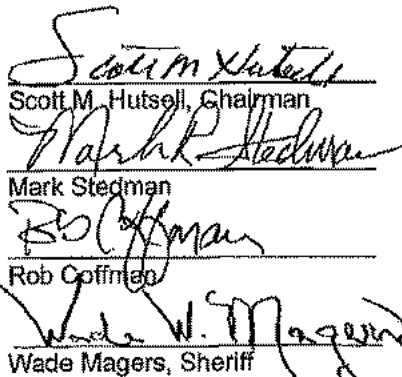 Scott M Hutsell
Scott M. Hutsell, Chairman
Mark R. Stedman
Mark Stedman
Rob Coffman
Rob Coffman
Wade W. Magers
Wade Magers, Sheriff